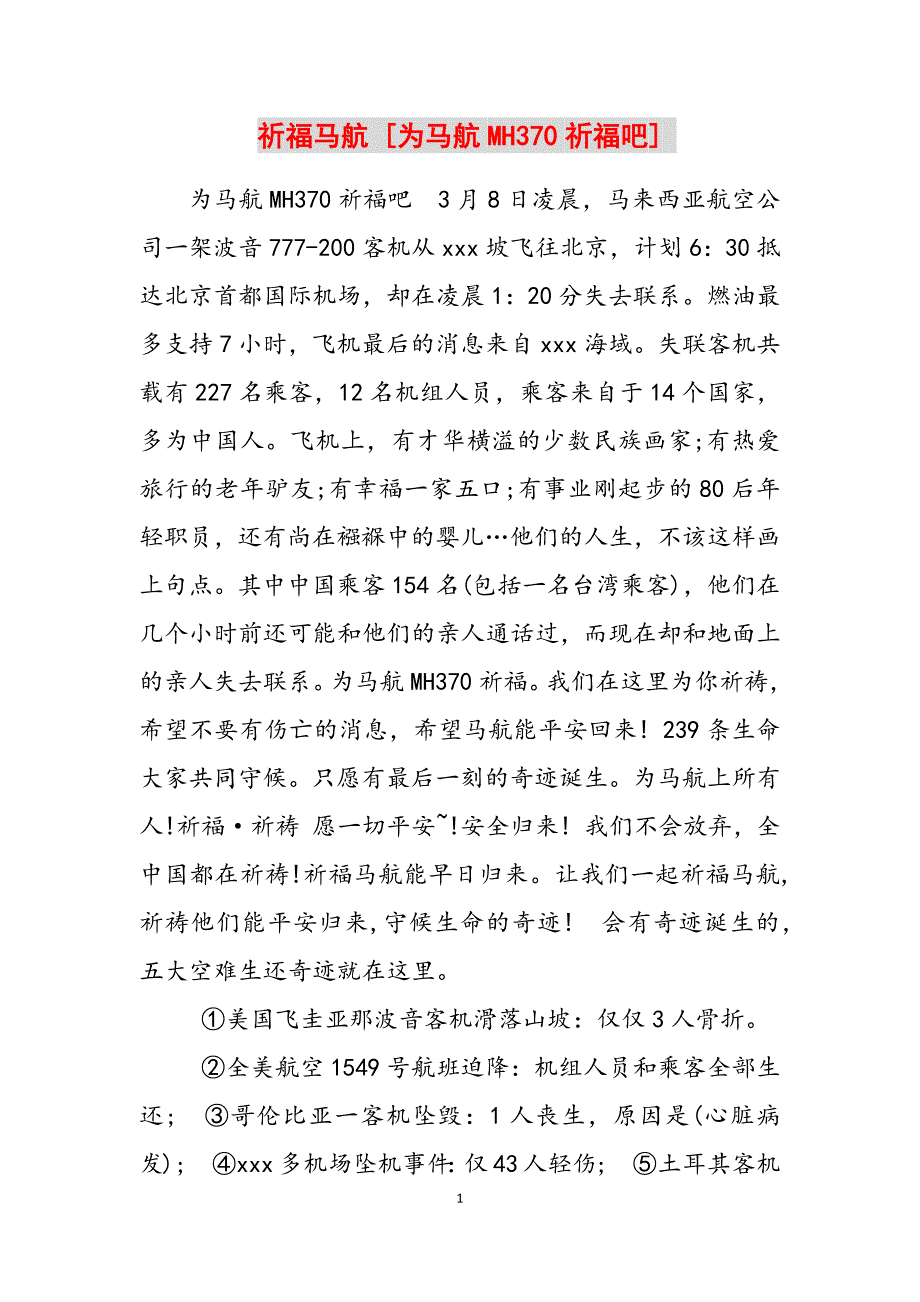 祈福马航 [为马航MH370祈福吧]
为马航MH370祈福吧　3月8日凌晨，马来西亚航空公
司一架波音777-200客机从xxx坡飞往北京，计划6：30抵
达北京首都国际机场，却在凌晨1：20分失去联系。燃油最
多支持7小时，飞机最后的消息来自xxx海域。失联客机共
载有227名乘客，12名机组人员，乘客来自于14个国家，
多为中国人。飞机上，有才华横溢的少数民族画家;有热爱
旅行的老年驴友;有幸福一家五口;有事业刚起步的80后年
轻职员，还有尚在襁褓中的婴儿…他们的人生，不该这样画
上句点。其中中国乘客154名(包括一名台湾乘客)，他们在
几个小时前还可能和他们的亲人通话过，而现在却和地面上
的亲人失去联系。为马航MH370祈福。我们在这里为你祈祷，
希望不要有伤亡的消息，希望马航能平安回来！239条生命
大家共同守候。只愿有最后一刻的奇迹诞生。为马航上所有
人!祈福·祈祷 愿一切平安~!安全归来！我们不会放弃，全
中国都在祈祷!祈福马航能早日归来。让我们一起祈福马航,
祈祷他们能平安归来,守候生命的奇迹！　会有奇迹诞生的,
五大空难生还奇迹就在这里。
①美国飞圭亚那波音客机滑落山坡：仅仅3人骨折。
②全美航空1549号航班迫降：机组人员和乘客全部生
还；　③哥伦比亚一客机坠毁：1人丧生，原因是(心脏病
发)；　④xxx多机场坠机事件：仅43人轻伤；　⑤土耳其客机
1